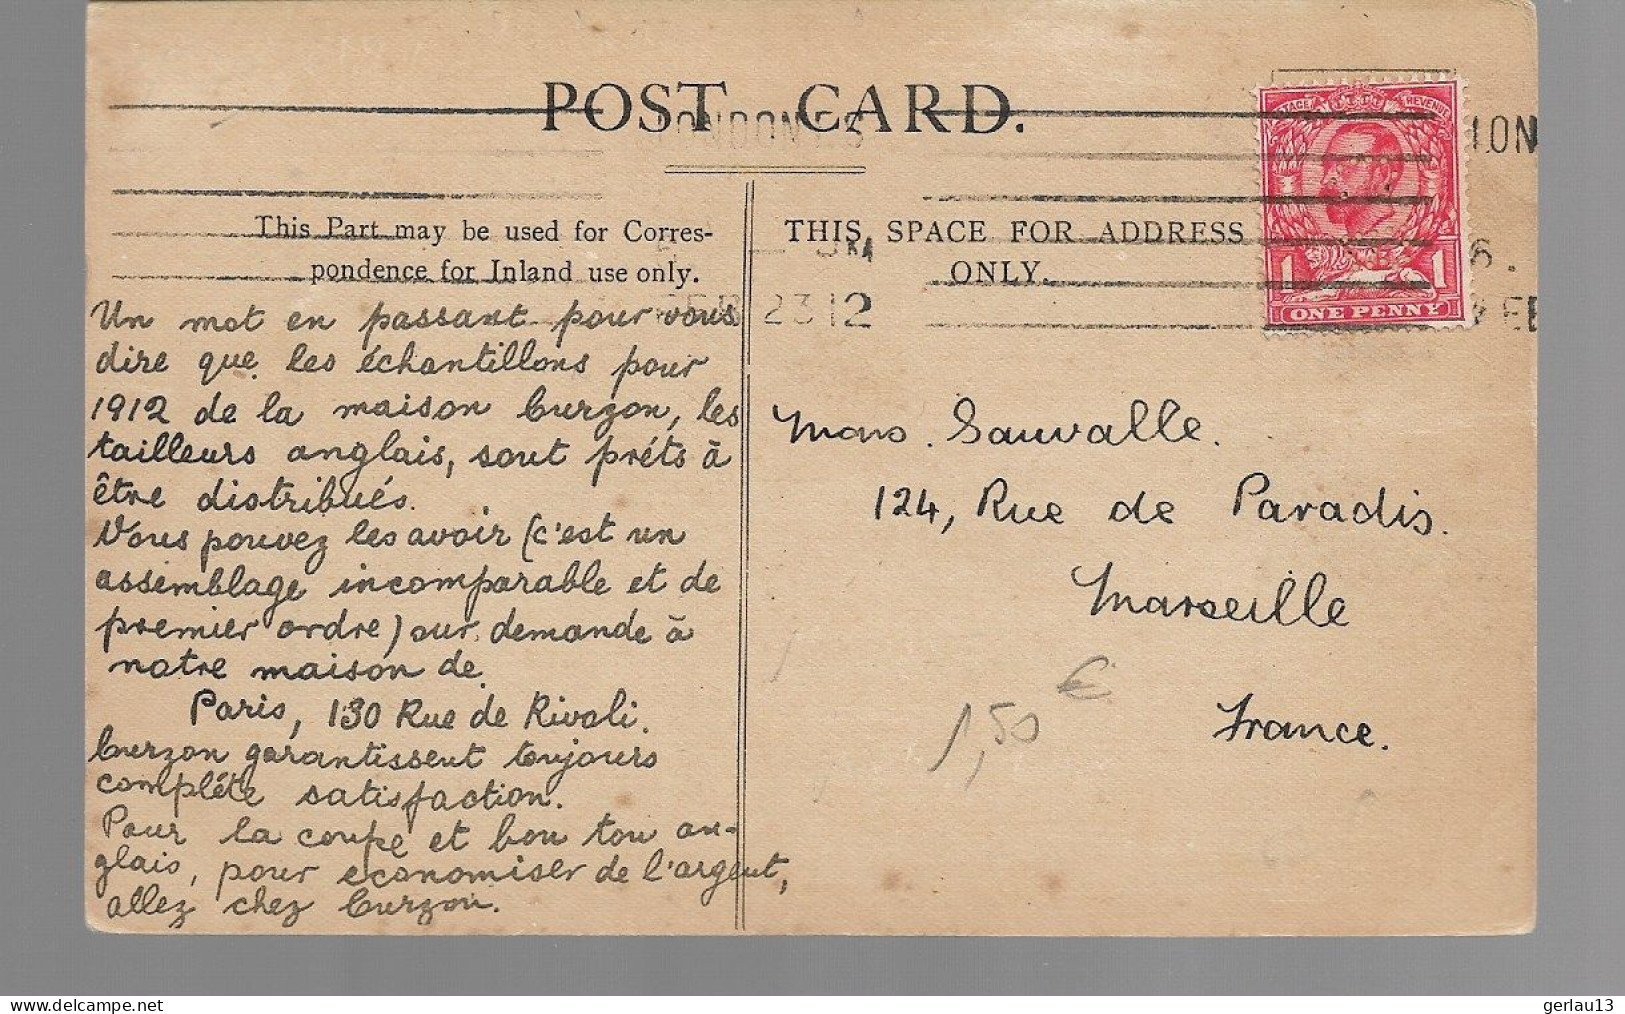 POST CARD.
LONDON. F.S
LON
This Part may be used for Corres-
pondence for Inland use only.
THIS SPACE FOR ADDRESS
ONLY.
FEB 23 12
POSTAGE REVENUE
1 1
ONE PENNY
Un mot en passant pour vous
dire que les échantillons pour
1912 de la maison Curzon, les
tailleurs anglais, sont préts à
être distribués.
Vous pouvez les avoir (c'est un
assemblage incomparable et de
premier ordre) sur demande à
notre maison de
Paris, 130 Rue de Rivoli.
Curzon garantissent toujours
compléte satisfaction.
Pour la coupe et bon ton an-
glais, pour economiser de l'argent,
allez chez Curzon.
Mons. Sauvalle.
124, Rue de Paradis.
Marseille
France.
1,50 €
www.delcampe.net
gerlau13